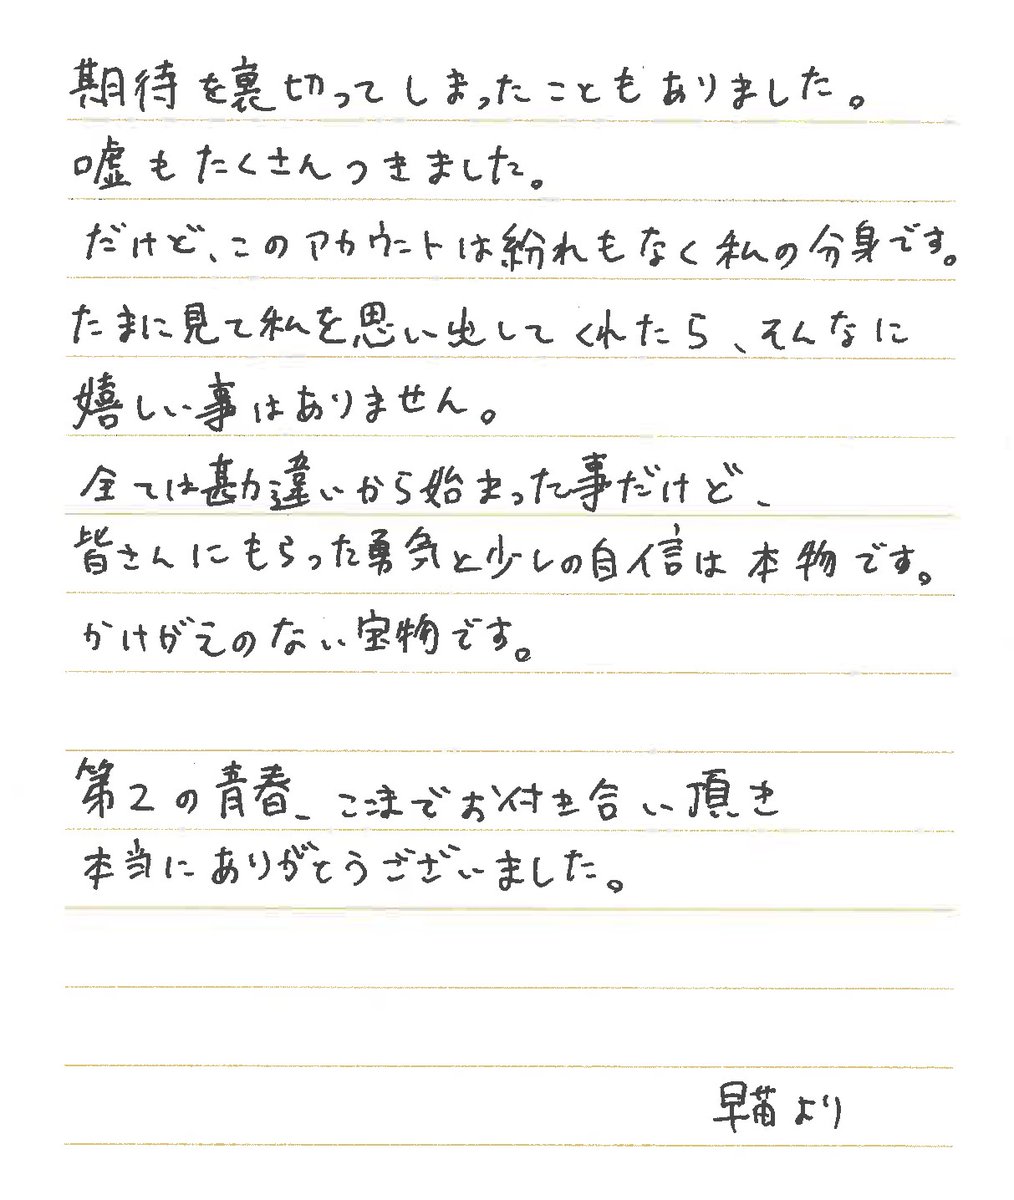 期待を裏切ってしまったこともありました。
嘘もたくさんつきました。
だけど、このアカウントは紛れもなく私の分身です。
たまに見て私を思い出してくれたら、そんなに
嬉しい事はありません。
全ては勘違いから始まった事だけど、
皆さんにもらった勇気と少しの自信は本物です。
かけがえのない宝物です。
第2の青春、ここまでお付き合い頂き
本当にありがとうございました。
早苗より